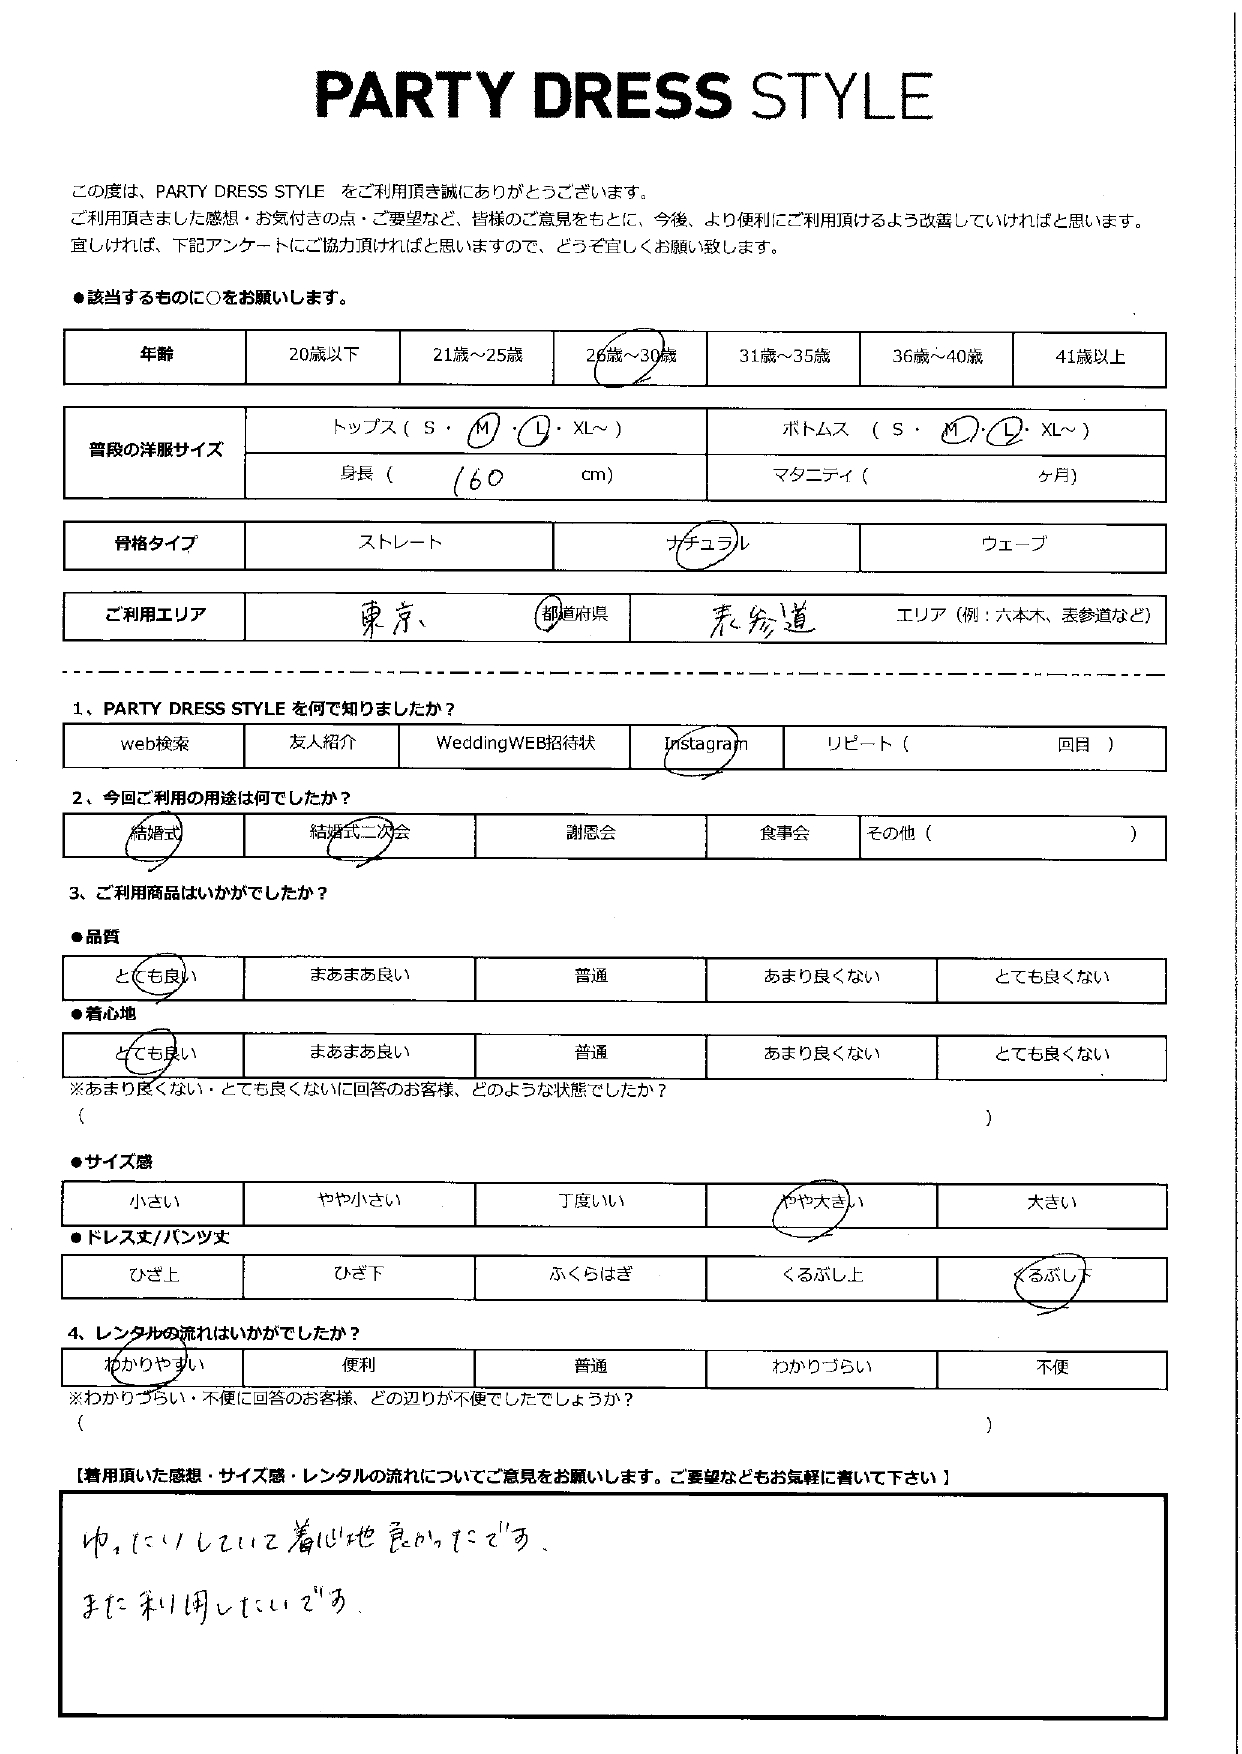 PARTY DRESS STYLE
この度は、PARTY DRESS STYLE をご利用頂き誠にありがとうございます。
ご利用頂きました感想・お気付きの点・ご要望など、皆様のご意見をもとに、今後、より便利にご利用頂けるよう改善していければと思います。
宜しければ、下記アンケートにご協力頂ければと思いますので、どうぞ宜しくお願い致します。
●該当するものに○をお願いします。
年齢 20歳以下 21歳～25歳 26歳～30歳 31歳～35歳 36歳～40歳 41歳以上
普段の洋服サイズ
トップス ( S ・ M ・ L ・ XL～ ) ボトムス ( S ・ M ・ L ・ XL～ )
身長 ( 160 cm) マタニティ ( ヶ月)
骨格タイプ ストレート ナチュラル ウェーブ
ご利用エリア 東京、 都道府県 表参道 エリア（例：六本木、表参道など）
1、PARTY DRESS STYLE を何で知りましたか？
web検索 友人紹介 WeddingWEB招待状 Instagram リピート ( 回目 )
2、今回ご利用の用途は何でしたか？
結婚式 結婚式二次会 謝恩会 食事会 その他 ( )
3、ご利用商品はいかがでしたか？
●品質
とても良い まあまあ良い 普通 あまり良くない とても良くない
●着心地
とても良い まあまあ良い 普通 あまり良くない とても良くない
※あまり良くない・とても良くないに回答のお客様、どのような状態でしたか？
( )
●サイズ感
小さい やや小さい 丁度いい やや大きい 大きい
●ドレス丈/パンツ丈
ひざ上 ひざ下 ふくらはぎ くるぶし上 くるぶし下
4、レンタルの流れはいかがでしたか？
わかりやすい 便利 普通 わかりづらい 不便
※わかりづらい・不便に回答のお客様、どの辺りが不便でしたでしょうか？
( )
【着用頂いた感想・サイズ感・レンタルの流れについてご意見をお願いします。ご要望などもお気軽に書いて下さい】
ゆったりしていて着心地良かったです.
また利用したいです.